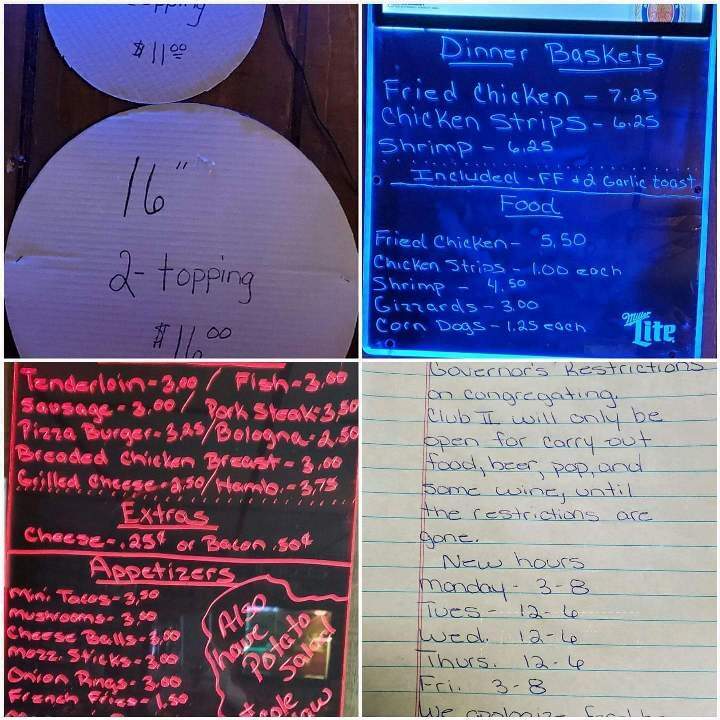 topping
$11.00
16"
2-topping
$16.00
Dinner Baskets
Fried Chicken - 7.25
Chicken Strips - 6.25
Shrimp - 6.25
Included - FF + 2 Garlic toast
Food
Fried Chicken - 5.50
Chicken Strips - 1.00 each
Shrimp - 4.50
Gizzards - 3.00
Corn Dogs - 1.25 each
Miller Lite
Tenderloin - 3.00 / Fish - 3.00
Sausage - 3.00 / Pork Steak - 3.50
Pizza Burger - 3.25 / Bologna - 2.50
Breaded Chicken Breast - 3.00
Grilled Cheese - 2.50 / Hamb. - 3.75
Extras
Cheese - .25¢ or Bacon .50¢
Appetizers
Mini Tacos - 3.50
Mushrooms - 3.00
Cheese Balls - 3.00
Mozz. Sticks - 3.00
Onion Rings - 3.00
French Fries - 1.50
Also
have
Potato
Salad
Governor's Restrictions
on congregating.
Club II will only be
open for carry out
food, beer, pop, and
some wine, until
the restrictions are
gone.
New hours
Monday - 3-8
Tues - 12-6
Wed. 12-6
Thurs. 12-6
Fri. 3-8
We apologize